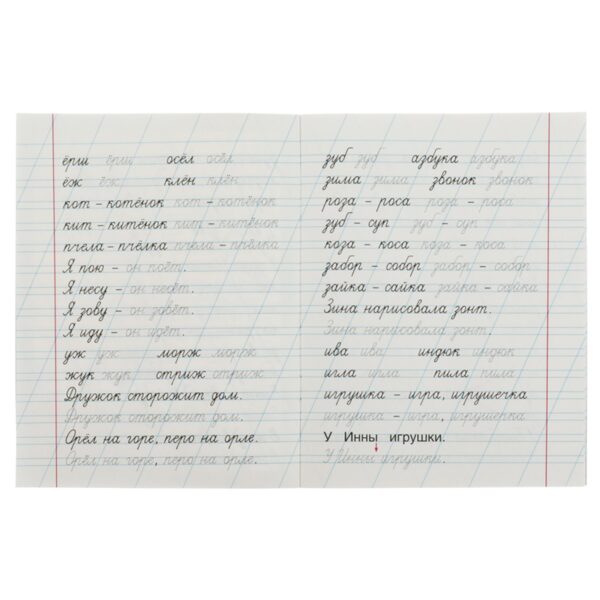 ёрш ёрш осёл осёл
ёж ёж клён клён
кот – котёнок кот – котёнок
кит – китёнок кит – китёнок
пчела – пчёлка пчела – пчёлка
Я пою – он поёт.
Я несу – он несёт.
Я зову – он зовёт.
Я иду – он идёт.
уж уж морж морж
жук жук стриж стриж
Дружок сторожит дом.
Дружок сторожит дом.
Орёл на горе, перо на орле.
Орёл на горе, перо на орле.
зуб зуб азбука азбука
зима зима звонок звонок
роза – роса роза – роса
зуб – суп зуб – суп
коза – коса коза – коса
забор – собор забор – собор
зайка – сайка зайка – сайка
Зина нарисовала зонт.
Зина нарисовала зонт.
ива ива индюк индюк
игла игла пила пила
игрушка – игра, игрушечка
игрушка – игра, игрушечка
У Инны игрушки.
У Инны игрушки.